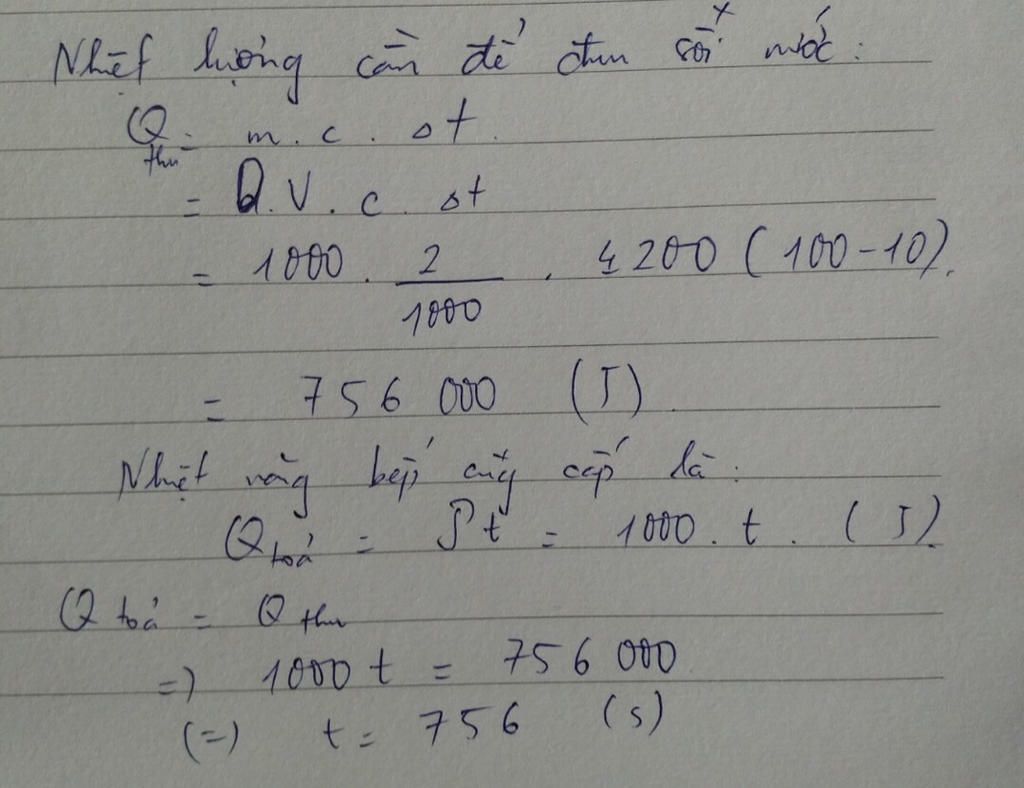 Nhiệt lượng cần để đun sôi nước:
Q thu = m . c . Δt.
= D.V. c. Δt
= 1000 . 2/1000 . 4200 (100-10).
= 756 000 (J).
Nhiệt năng bếp cung cấp là:
Q toả = Pt = 1000 . t . (J).
Q toả = Q thu
=> 1000 t = 756 000
(=) t = 756 (s)